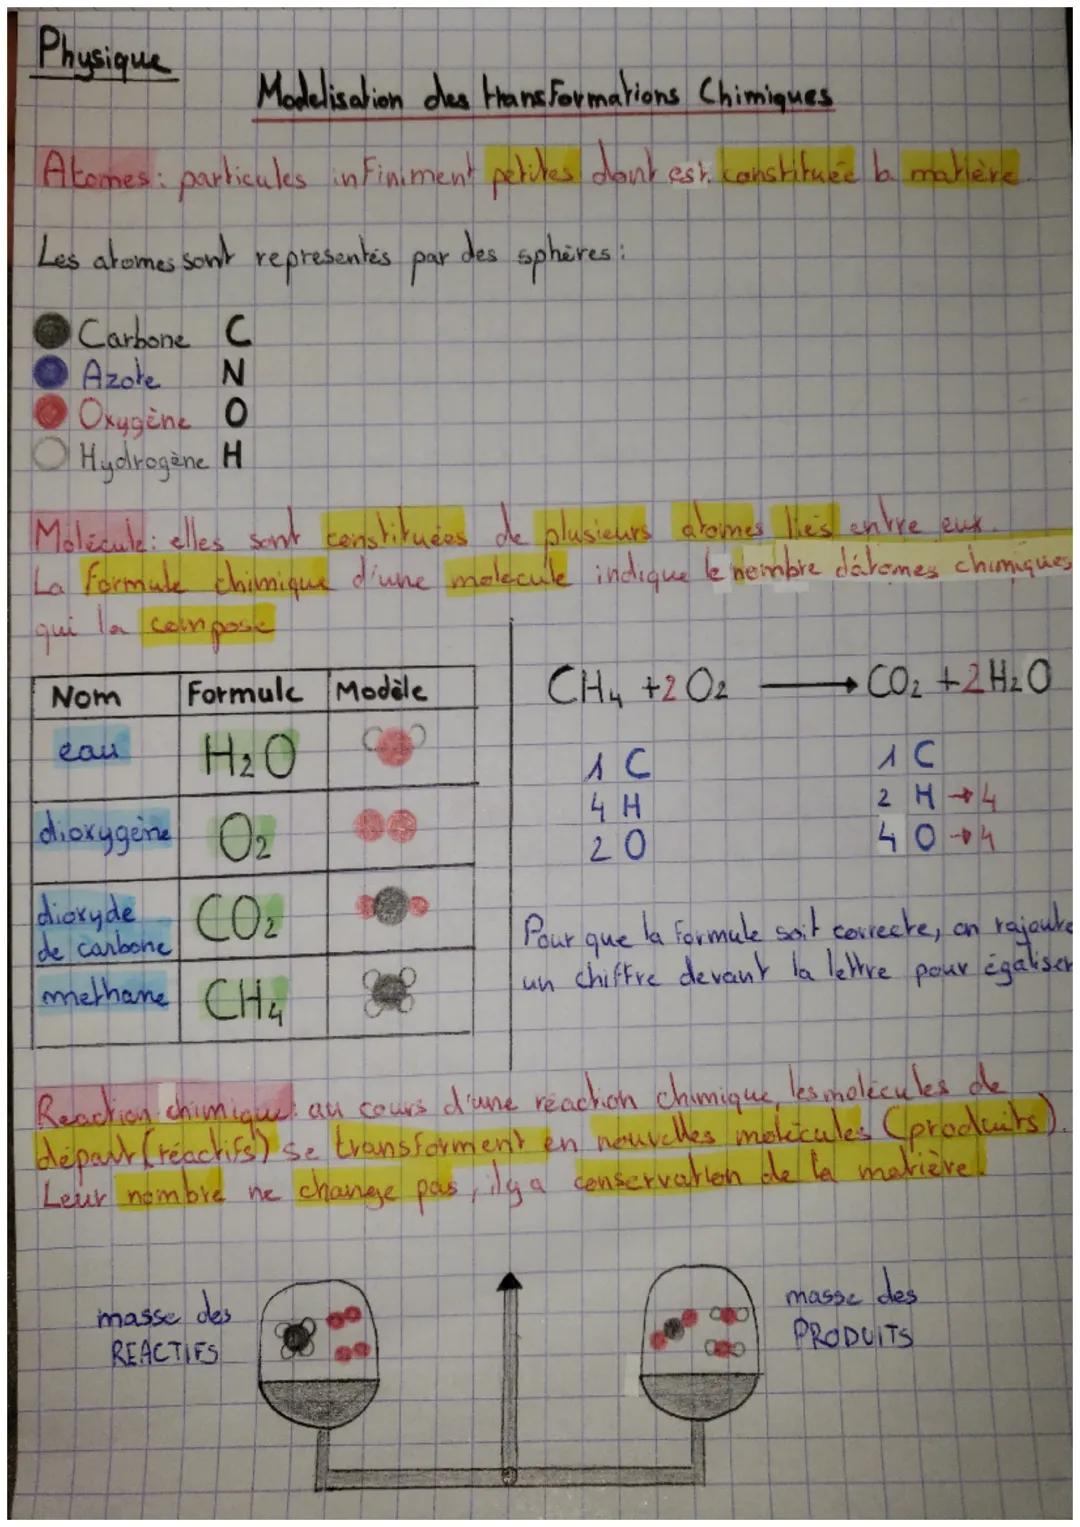 Physique
Modelisation des transformations Chimiques
Atomes : particules infiniment petites dont est constituée la matière.
Les atomes sont representés par des sphères :
Carbone C
Azote N
Oxygène O
Hydrogène H
Molécule : elles sont constituées de plusieurs atomes liés entre eux.
La formule chimique d'une molécule indique le nombre d'atomes chimiques
qui la compose
Nom Formule Modèle
eau H₂O
dioxygène O₂
dioxyde
de carbone CO₂
methane CH₄
CH₄ + 2 O₂ → CO₂ + 2 H₂O
1 C 1 C
4 H 2 H → 4
2 O 4 O → 4
Pour que la formule soit correcte, on rajoute
un chiffre devant la lettre pour égaliser
Reaction chimique : au cours d'une réaction chimique, les molécules de
départ (réactifs) se transforment en nouvelles molécules (produits).
Leur nombre ne change pas, il y a conservation de la matière.
masse des
REACTIFS
masse des
PRODUITS